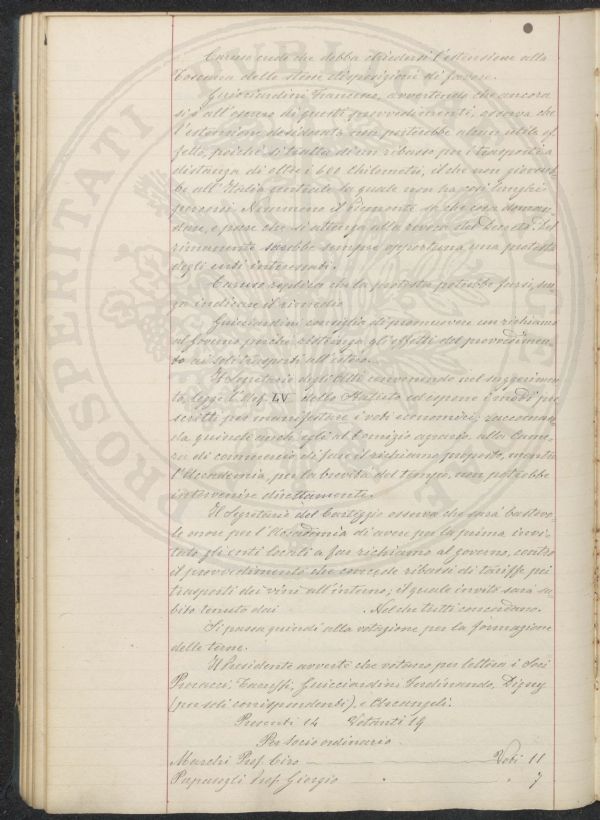 Caruso crede che debba chiedersi l'estensione alla
Toscana delle stesse disposizioni di favore.
Guicciardini Francesco, avvertendo che ancora
si è all'oscuro di questi provvedimenti, osserva che
l'estensione desiderata non porterebbe alcun utile ef-
fetto, poichè si tratta di un ribasso per i trasporti a
distanza di oltre i 600 chilometri, il che non giovereb-
be all'Italia centrale la quale non ha così lunghi
percorsi. Nemmeno il Piemonte sa che cosa doman-
dare, e pare che si attenga alla revoca del Decreto. Del
rimanente sarebbe sempre opportuna una protesta
degli enti interessati.
Caruso replica che la protesta potrebbe farsi, sen-
za indicare il rimedio.
Guicciardini consiglia di promuovere un richiamo
al governo perchè restringa gli effetti del provvedimen-
to ai soli trasporti all'estero.
Il Segretario degli Atti convenendo nel suggerimen-
to, legge l'Art. LV dello Statuto ed espone i modi pre-
scritti per manifestare i voti economici; raccoman-
da quindi anche egli al Comizio agrario, alla Came-
ra di commercio di fare il richiamo proposto, mentre
l'Accademia, per la brevità del tempo, non potrebbe
intervenire direttamente.
Il Segretario del Carteggio osserva che sarà bastevo-
le onore per l'Accademia di avere per la prima invi-
tato gli enti locali a far richiamo al governo, contro
il provvedimento che concede ribassi di tariffe pei
trasporti dei vini all'interno; il quale invito sarà su-
bito tenuto dai . Nel che tutti concordano.
Si passa quindi alla votazione per la formazione
delle terne.
Il Presidente avverte che votano per lettera i Soci
Pecacci, Guicciardini Ferdinando, Digny
(per soli corrispondenti), e Arcangeli.
Presenti 14 Votanti 19
Per socio ordinario
Marchi Prof. Ciro Voti 11
Papasogli Prof. Giorgio " 7
PROSPERITATI PUBLICAE AUGENDAE